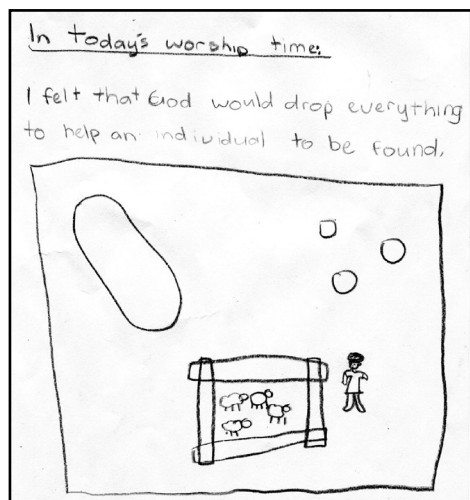 In today's worship time:
I felt that God would drop everything
to help an individual to be found.